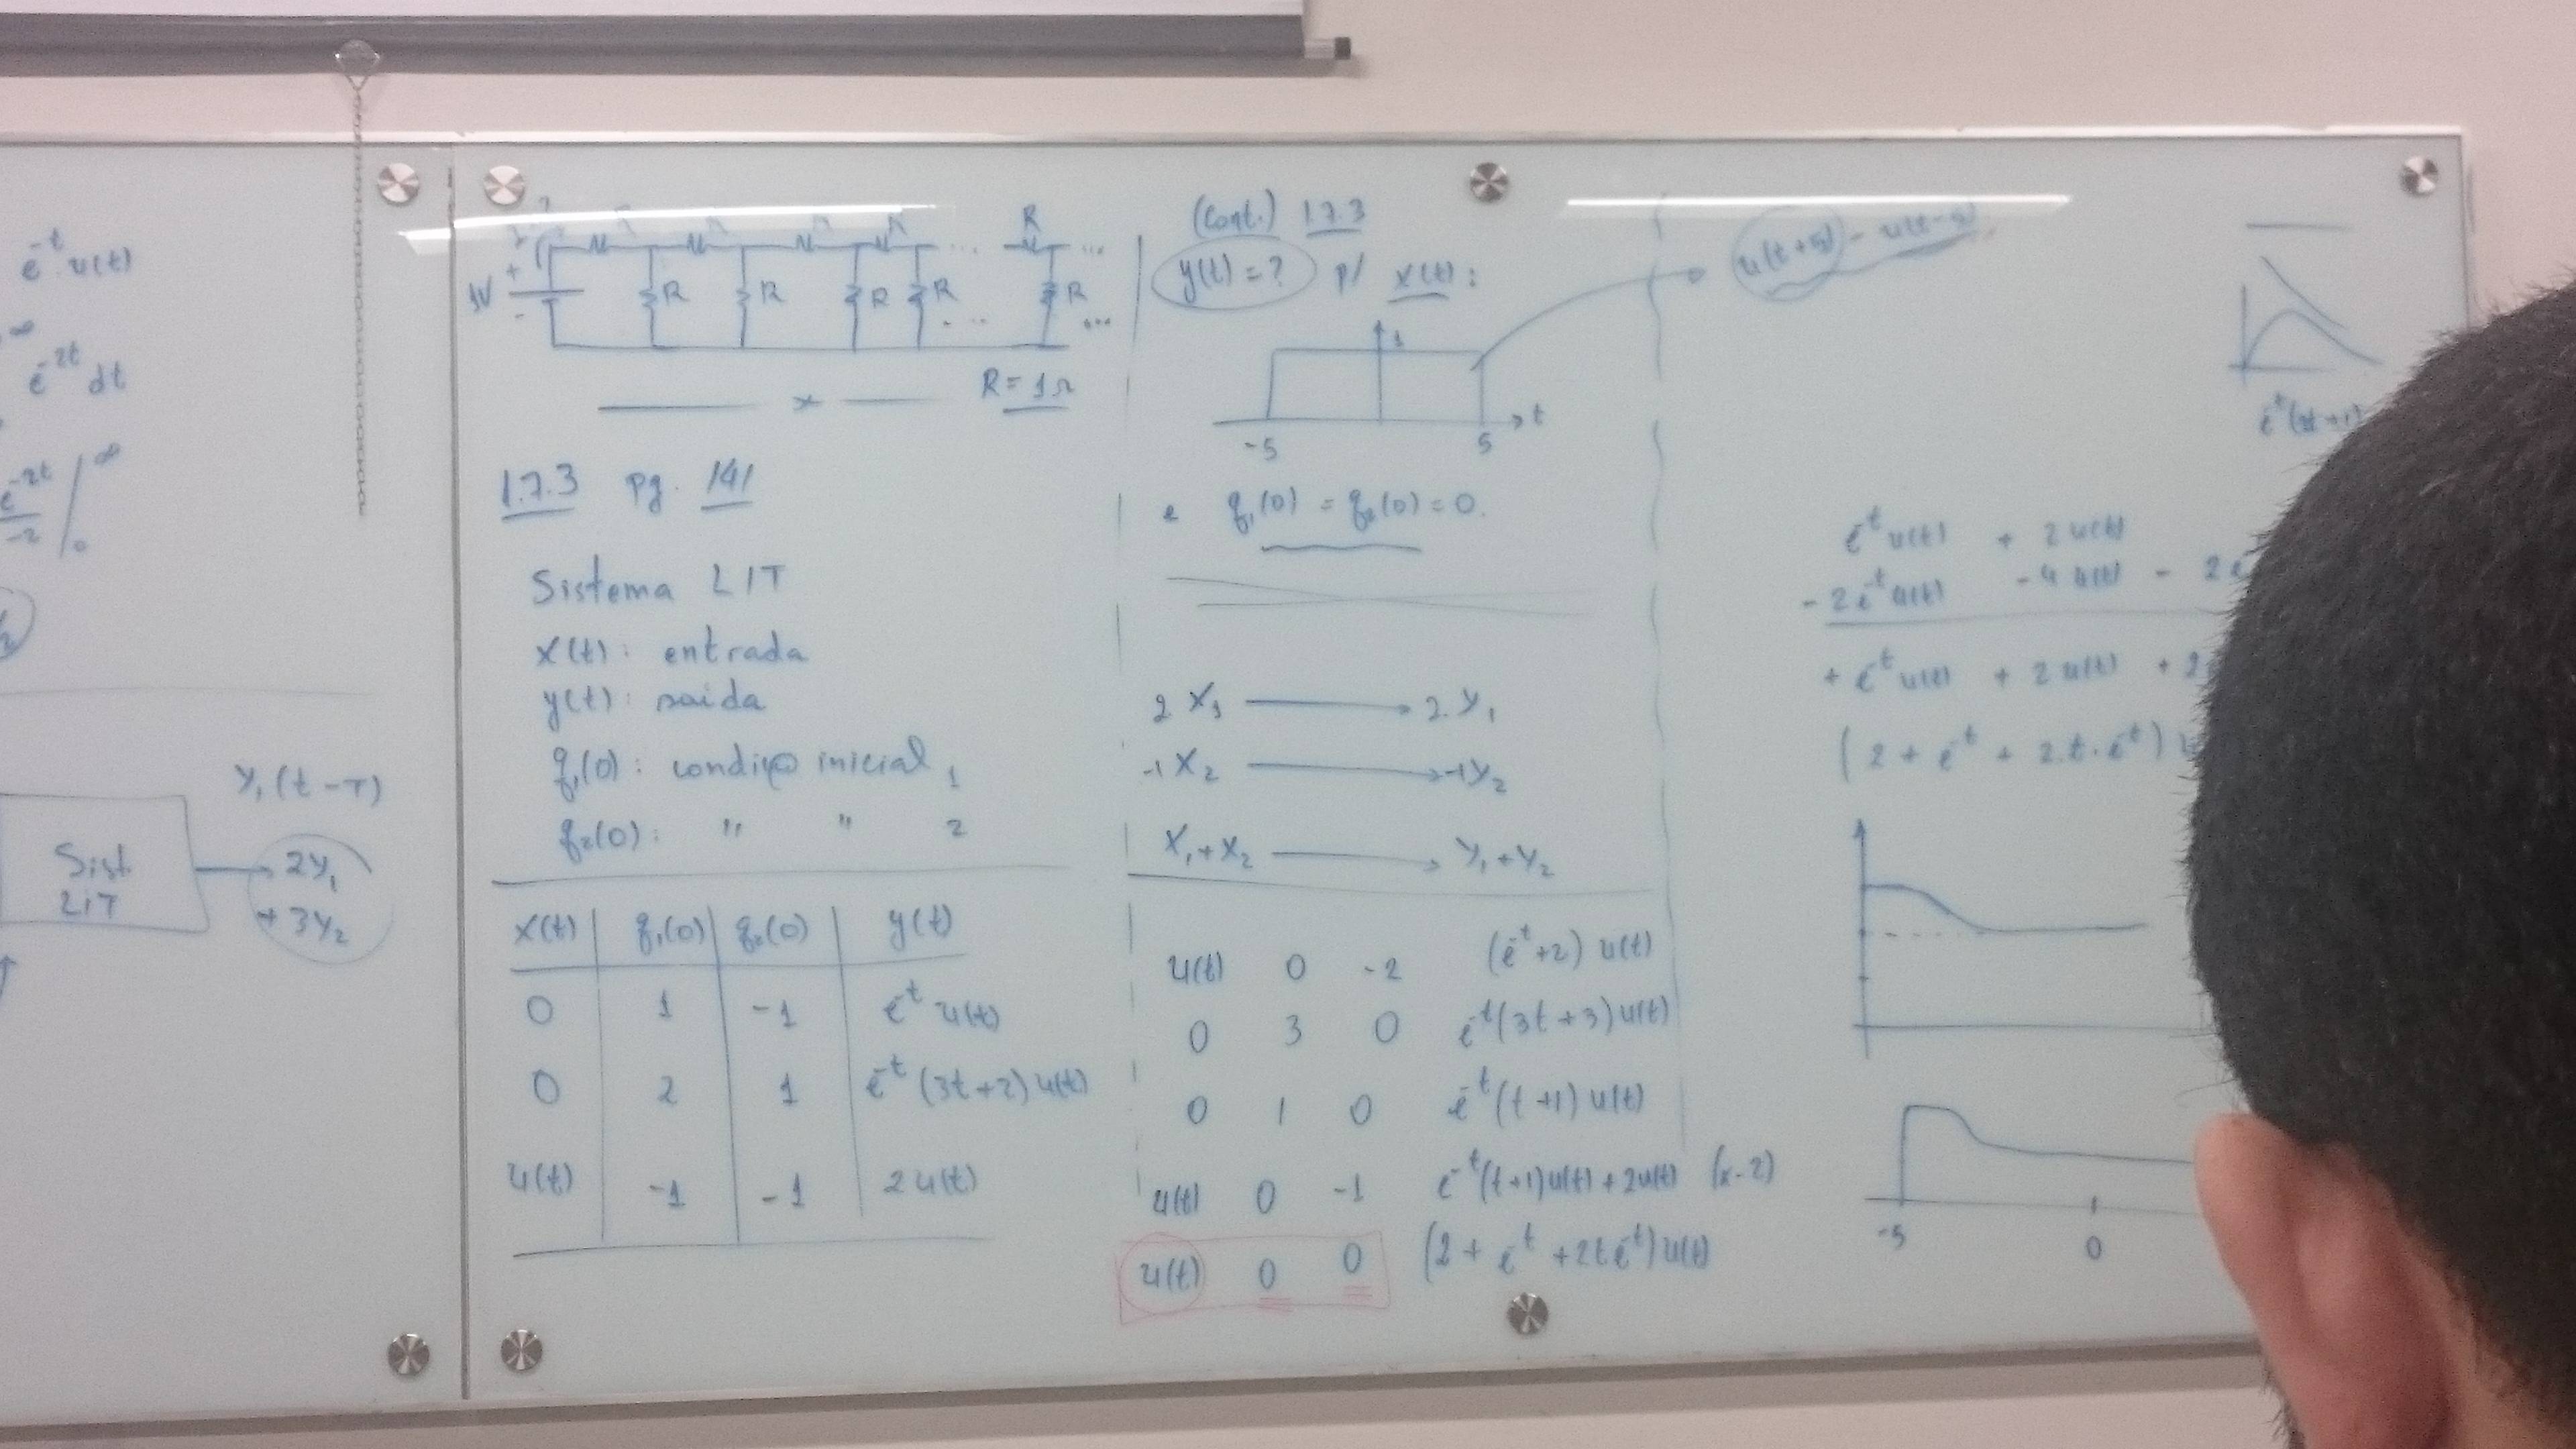 e^-t u(t)
∞
e^-2t dt
e^-2t
-2
∞
0
y₁(t-T)
Sist
LiT
2y₁
+ 3y₂
1V
+
-
R
R R R R R
...
...
R = 1Ω
x
1.7.3 pg. 141
Sistema LIT
x(t): entrada
y(t): saida
q₁(0): condição inicial 1
q₂(0): " " 2
x(t) q₁(0) q₂(0) y(t)
0 1 -1 e^-t u(t)
0 2 1 e^-t (3t+2) u(t)
u(t) -1 -1 2 u(t)
(Cont.) 1.7.3
y(t) = ? p/ x(t):
1
-5 5 t
e q₁(0) = q₂(0) = 0.
2 X₁ → 2. y₁
-1 X₂ → -1 y₂
X₁+X₂ → y₁+y₂
u(t) 0 -2 (e^-t+2) u(t)
0 3 0 e^-t(3t+3) u(t)
0 1 0 e^-t(t+1) u(t)
u(t) 0 -1 e^-t(t+1)u(t) + 2u(t) (x-2)
u(t) 0 0 (2 + e^-t + 2te^-t) u(t)
u(t+5) - u(t-5)
e^-t u(t) + 2 u(t)
- 2e^-t u(t) - 4 u(t) - 2e
+ e^-t u(t) + 2 u(t) + 2
(2 + e^-t + 2.t.e^-t)
-5 0